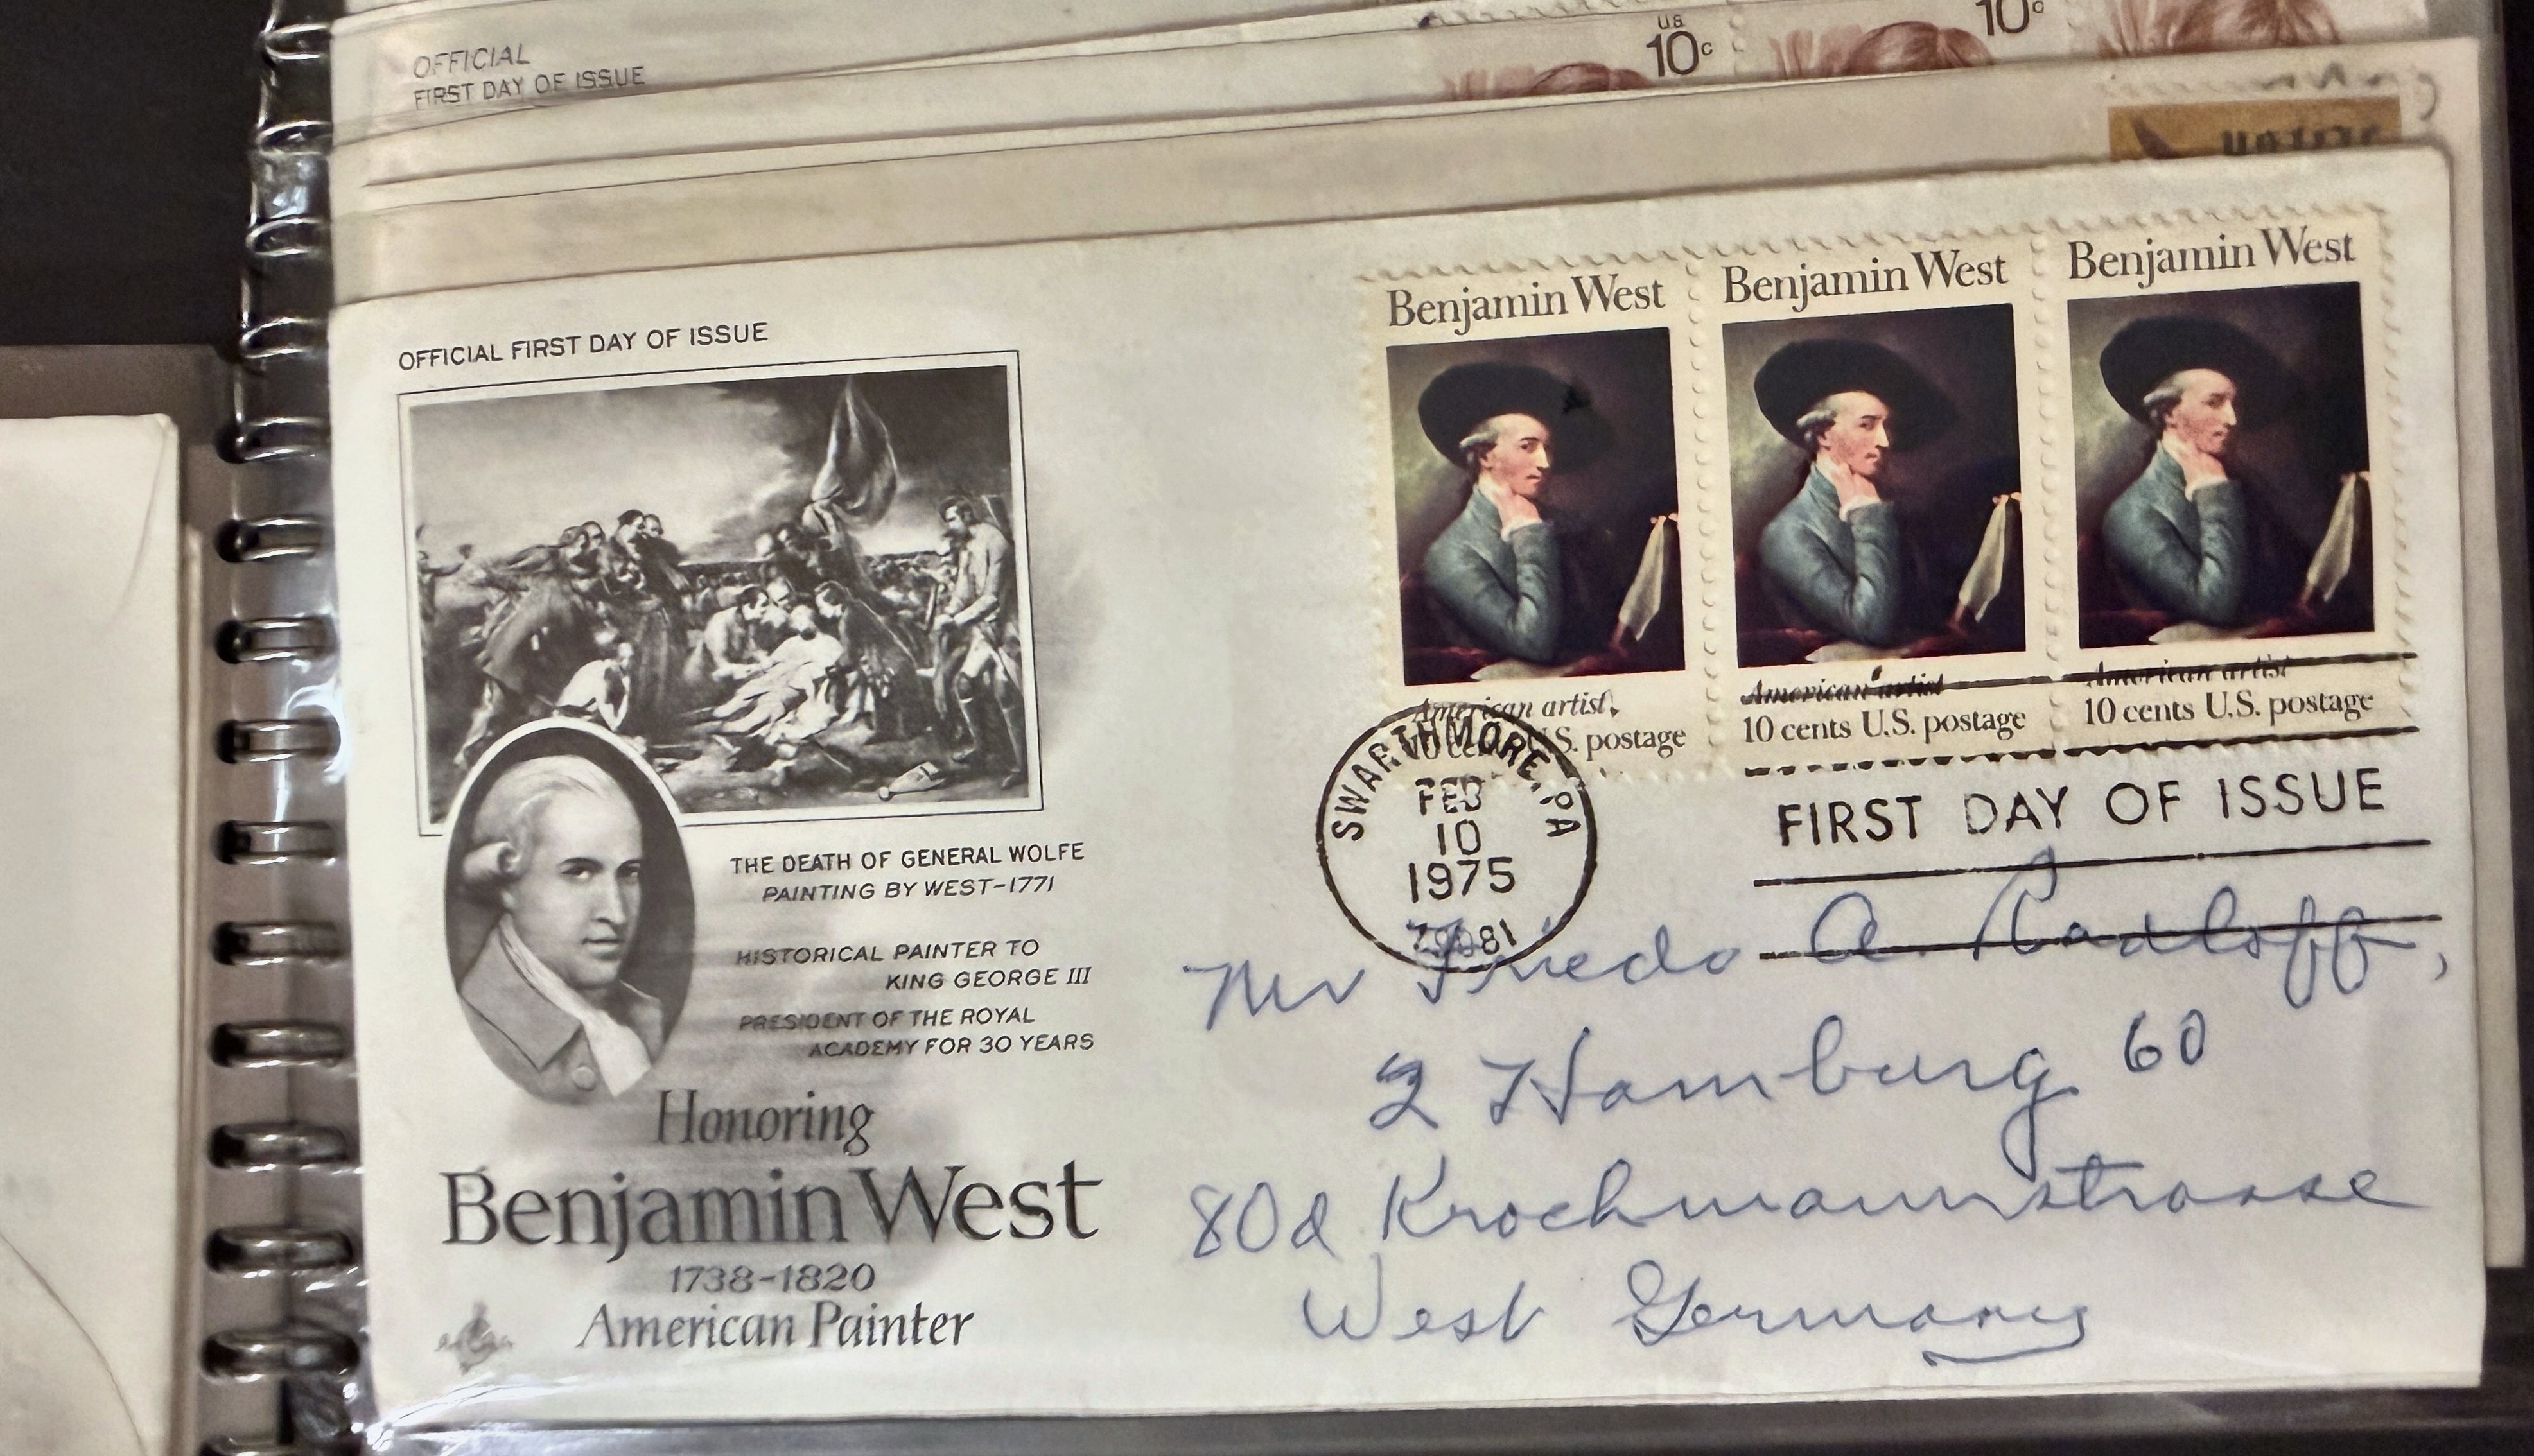 OFFICIAL
FIRST DAY OF ISSUE
US
10c
10c
OFFICIAL FIRST DAY OF ISSUE
Benjamin West
American artist
10 cents U.S. postage
Benjamin West
American artist
10 cents U.S. postage
Benjamin West
American artist
10 cents U.S. postage
SWARTHMORE, PA
FEB
10
1975
19081
FIRST DAY OF ISSUE
THE DEATH OF GENERAL WOLFE
PAINTING BY WEST-1771
HISTORICAL PAINTER TO
KING GEORGE III
PRESIDENT OF THE ROYAL
ACADEMY FOR 30 YEARS
Honoring
Benjamin West
1738-1820
American Painter
Mr Friedo A. Radloff,
2 Hamburg 60
80d Krochmannstrasse
West Germany